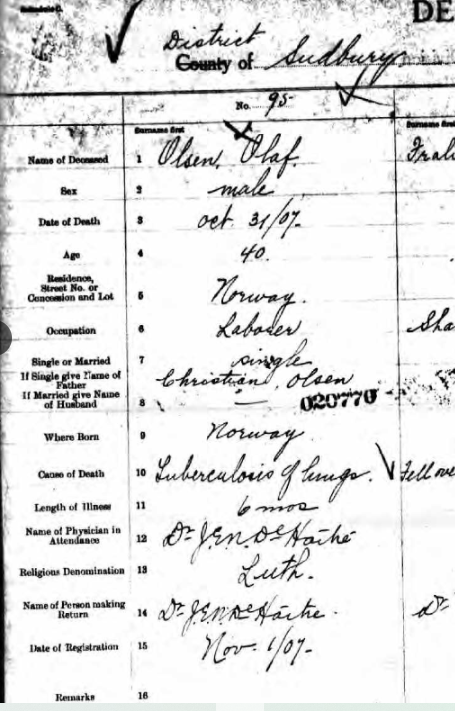 Schedule C.
DE
District
County of Sudbury
No. 95
Surname first
Surname first
Name of Deceased 1 Olsen, Olaf.
Sex 2 male
Date of Death 3 Oct. 31/07-
Age 4 40.
Residence,
Street No. or
Concession and Lot 5 Norway.
Occupation 6 Laborer
Single or Married 7 single
If Single give Name of
Father
Christian Olsen
If Married give Name
of Husband 8 — 020770
Where Born 9 Norway
Cause of Death 10 Tuberculosis of lungs. Fell over
Length of Illness 11 6 mos
Name of Physician in
Attendance 12 Dr J.E.N. De Haitre
Religious Denomination 13 Luth.
Name of Person making
Return 14 Dr J.E.N. De Haitre. Dr
Date of Registration 15 Nov. 1/07-
Remarks 16